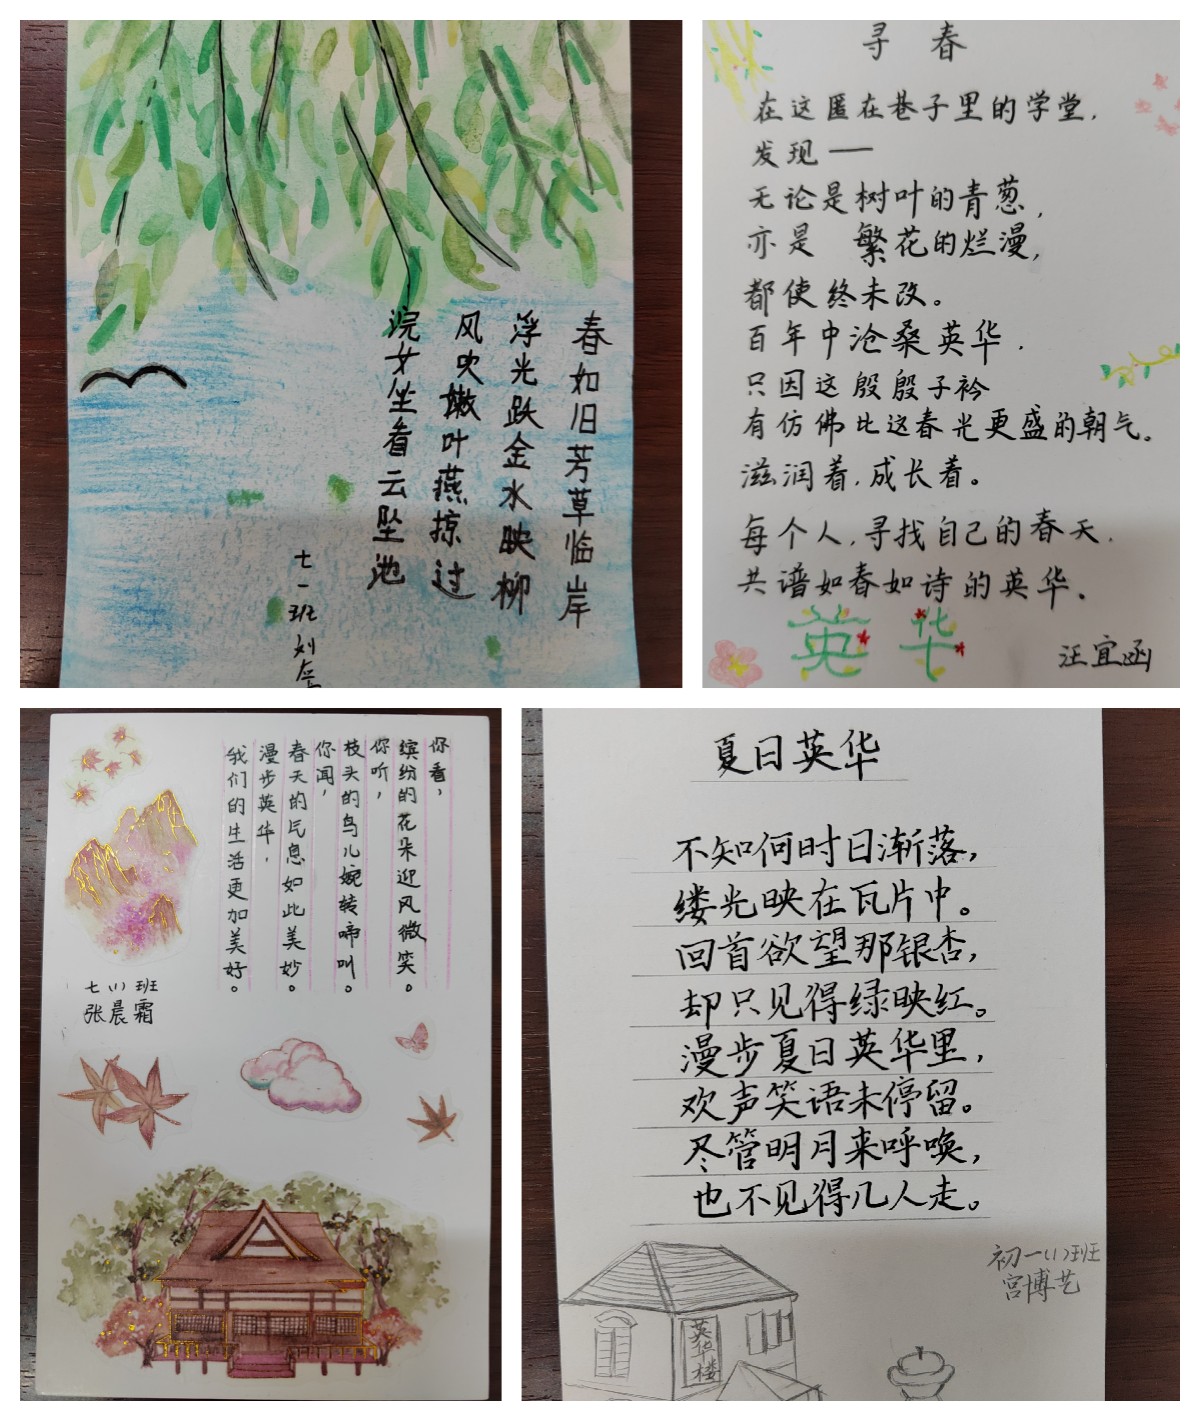 春如旧芳草临岸
浮光跃金水映柳
风吹嫩叶燕掠过
浣女坐看云坠池
七一班刘
寻春
在这匿在巷子里的学堂,
发现——
无论是树叶的青葱,
亦是 繁花的烂漫,
都使终未改。
百年中沧桑英华.
只因这殷殷子衿
有仿佛比这春光更盛的朝气。
滋润着,成长着。
每个人,寻找自己的春天.
共谱如春如诗的英华.
英华
汪宜函
你看,
缤纷的花朵迎风微笑。
你听,
枝头的鸟儿婉转啼叫。
你闻,
春天的气息如此美妙。
漫步英华,
我们的生活更加美好。
七(1)班
张晨霜
夏日英华
不知何时日渐落,
缕光映在瓦片中。
回首欲望那银杏,
却只见得绿映红。
漫步夏日英华里,
欢声笑语未停留。
尽管明月来呼唤,
也不见得几人走。
初一(1)班
宫博艺
英华楼